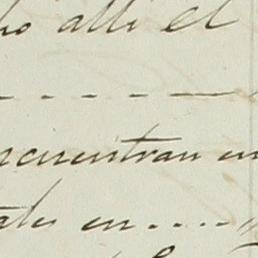 ho alli el
- - - - - —
ncuentran en
tales en.....